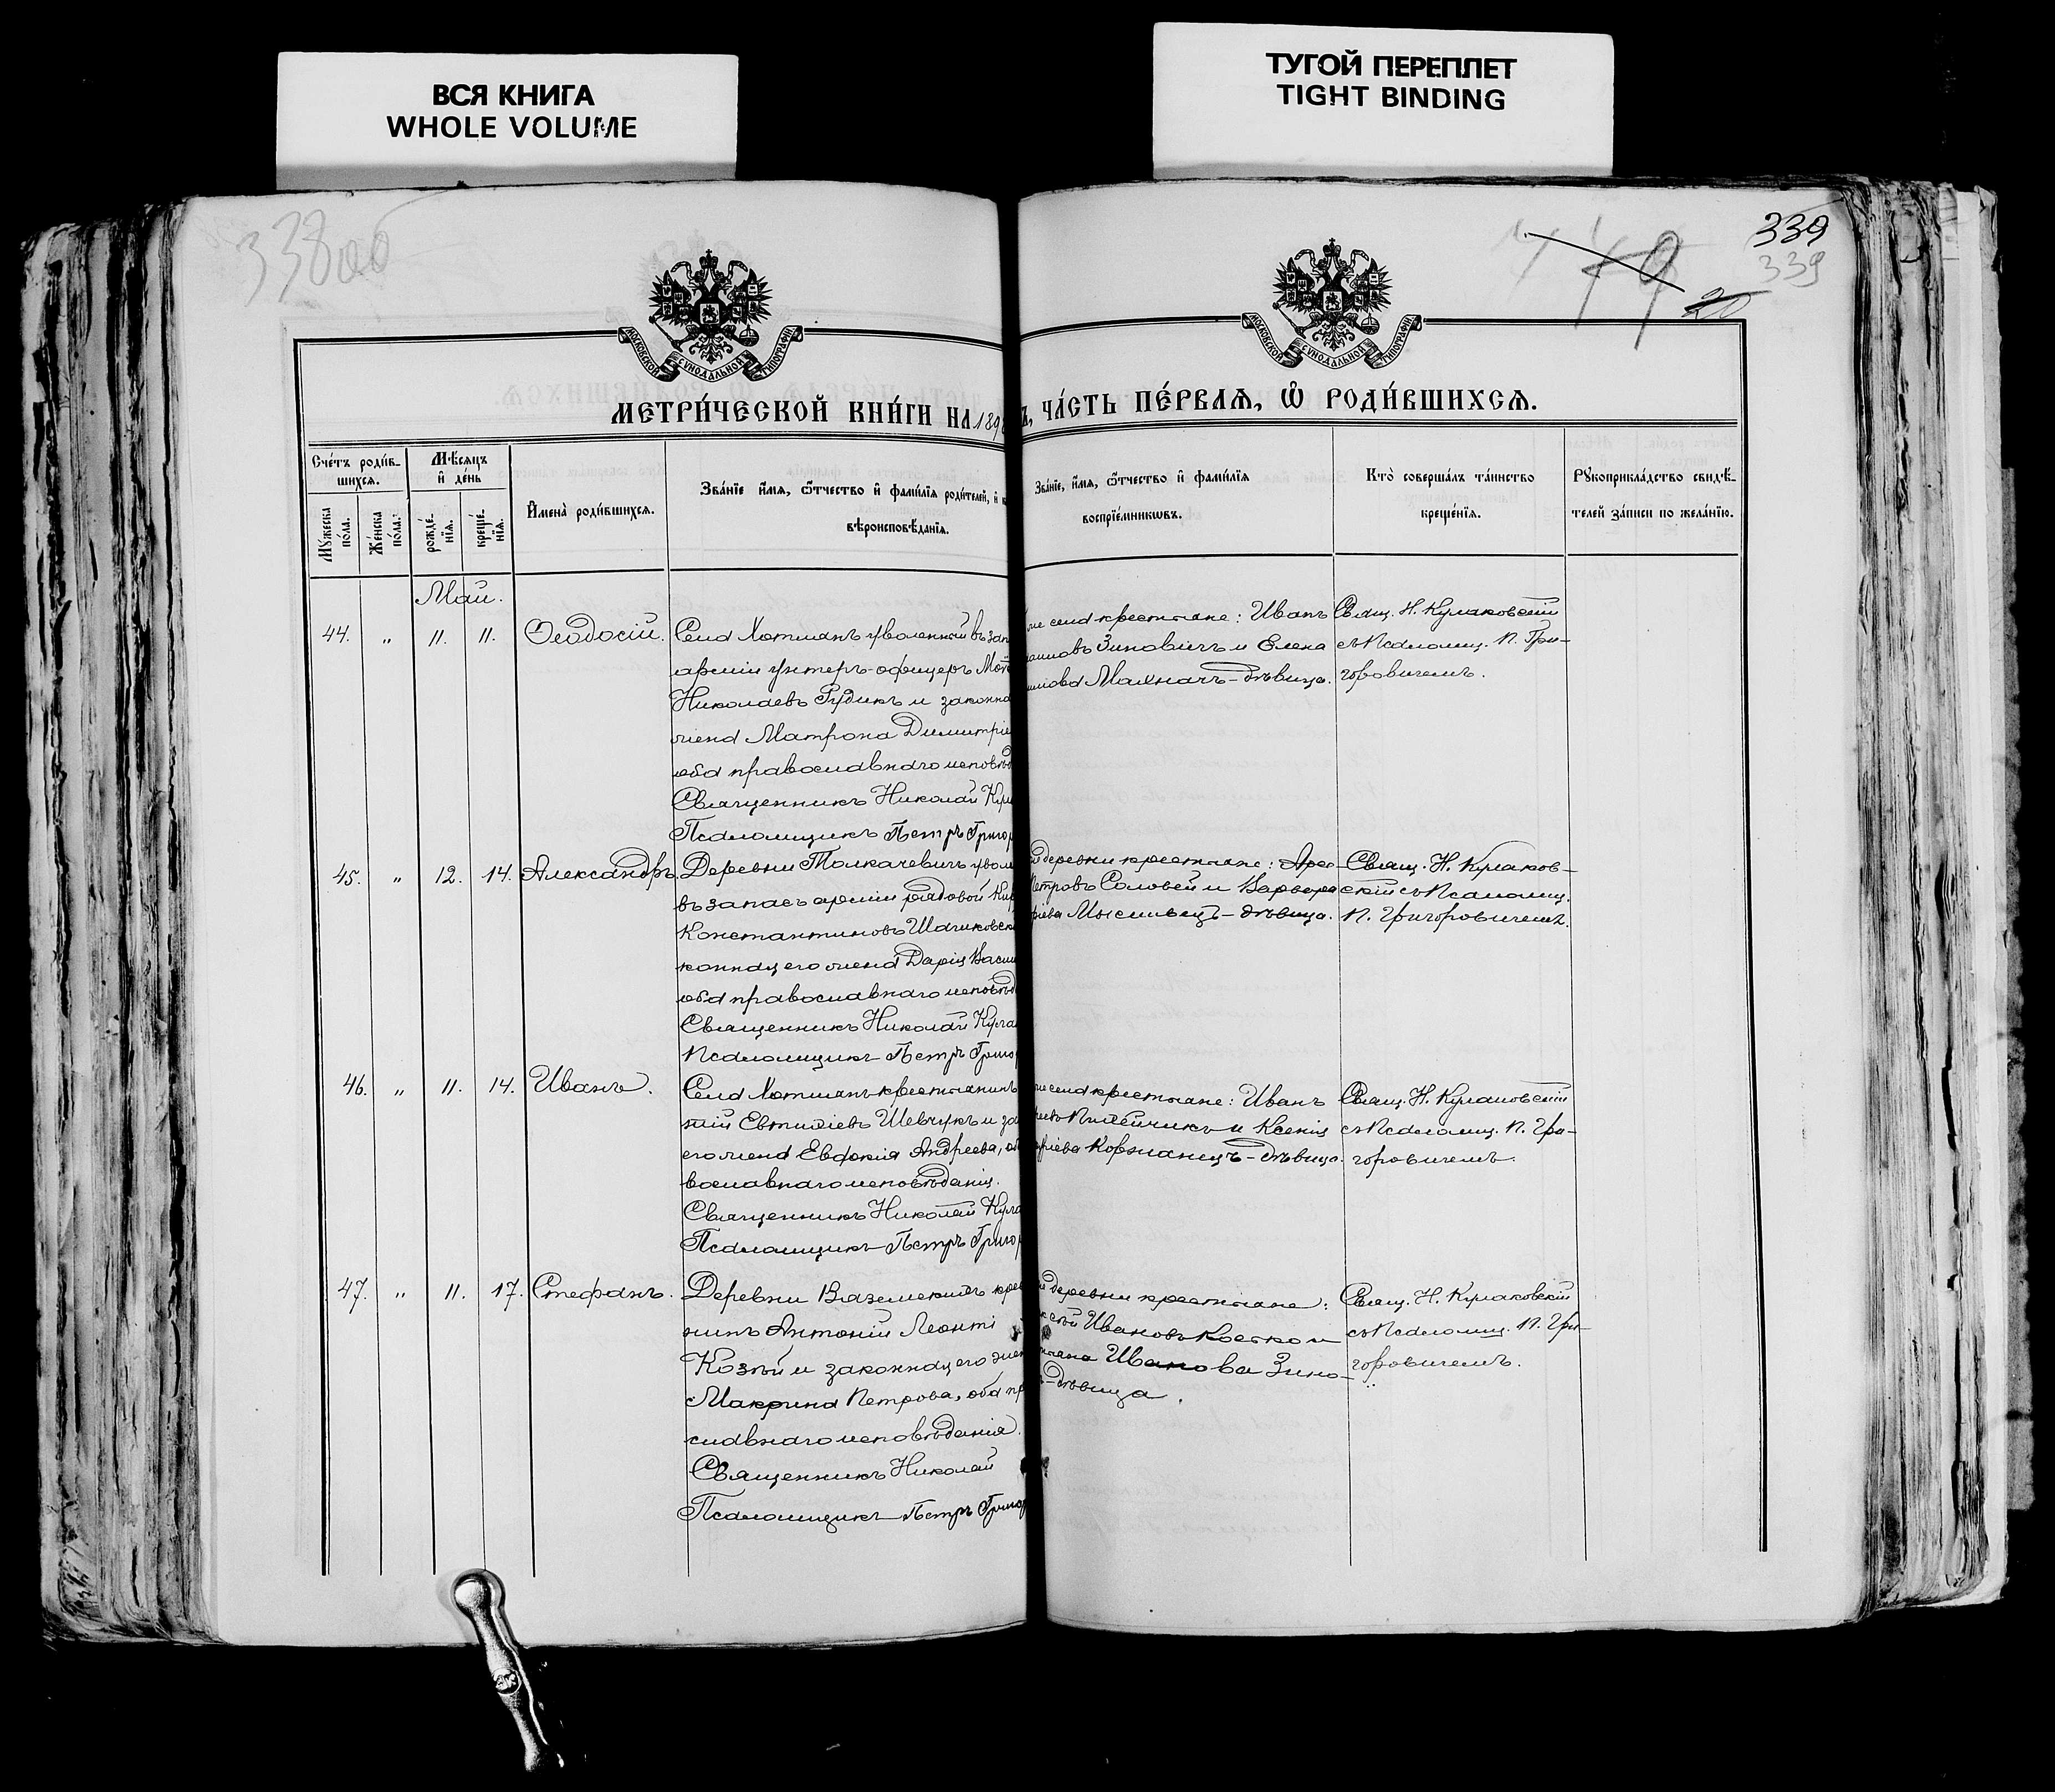 ВСЯ КНИГА
WHOLE VOLUME
ТУГОЙ ПЕРЕПЛЕТ
TIGHT BINDING
338об
339
339
20
МОСКОВСКОЙ СѴНОДАЛЬНОЙ ТИПОГРАФІИ
МОСКОВСКОЙ СѴНОДАЛЬНОЙ ТИПОГРАФІИ
МЕТРИ́ЧЕСКОЙ КНИ́ГИ НА 189
ЧА́СТЬ ПЕ́РВАѦ, Ѽ РОДИ́ВШИХСѦ.
Сче́тъ роди́в-
шихсѧ.
Мѣ́сѧцъ
и҆ де́нь
Мꙋ́жеска
по́ла.
Же́нска
по́ла.
рожде́-
нїѧ.
креще́-
нїѧ.
И҆мена̀ роди́вшихсѧ.
Зва́нїе и҆́мѧ, ѻ҆́тчество и҆ фами́лїѧ роди́телей, и҆
вѣроисповѣ́данїѧ.
Зва́нїе, и҆́мѧ, ѻ҆́тчество и҆ фами́лїѧ
воспрїе́мникѡвъ.
Кто̀ соверша́лъ та́инство
креще́нїѧ.
Рꙋкоприкла́дство свидѣ́-
телей за́писи по жела́нїю.
Май.
44. " 11. 11. Ѳеодосій. Села Хотшанъ уволенный въ зап
арміи унтеръ-офицеръ
Николаевъ Рудикъ и законна
жена Матрона Димитріе
оба православнаго исповѣд
Священникъ Николай Кул
Псаломщикъ Петръ Григор
села крестьяне: Иванъ
Зиновичъ и Елена
Махначъ-дѣвица.
Свящ. Н. Кулаковскій
съ Псаломщ. П. Гри-
горовичемъ.
45. " 12. 14. Александръ. Деревни Толкачевичъ увол
въ запасъ арміи рядовой
Константиновъ
конная его жена Дарія Васи
оба православнаго исповѣд
Священникъ Николай Кула
Псаломщикъ Петръ Григор
деревни крестьяне:
Петровъ Соловей и Варвара
Мысливецъ-дѣвица.
Свящ. Н. Кулаков-
скій съ Псаломщ.
П. Григоровичемъ.
46. " 11. 14. Иванъ. Села Хотшанъ крестьянинъ
Евтихіевъ Шевчукъ и за
его жена Евдокія Андреева, об
вославнаго исповѣданія.
Священникъ Николай Кула
Псаломщикъ Петръ Григор
села крестьяне: Иванъ
и Ксенія
Коржанецъ-дѣвица.
Свящ. Н. Кулаковскій
съ Псаломщ. П. Гри-
горовичемъ.
47. " 11. 17. Стефанъ. Деревни крес
нинъ Антоній Леонті
Козѣй и законная его жен
Макрина Петрова, оба пр
славнаго исповѣданія.
Священникъ Николай
Псаломщикъ Петръ Григор
деревни крестьяне:
Ивановъ Костко и
Иванова Зино-
-дѣвица.
Свящ. Н. Кулаковскій
съ Псаломщ. П. Гри-
горовичемъ.